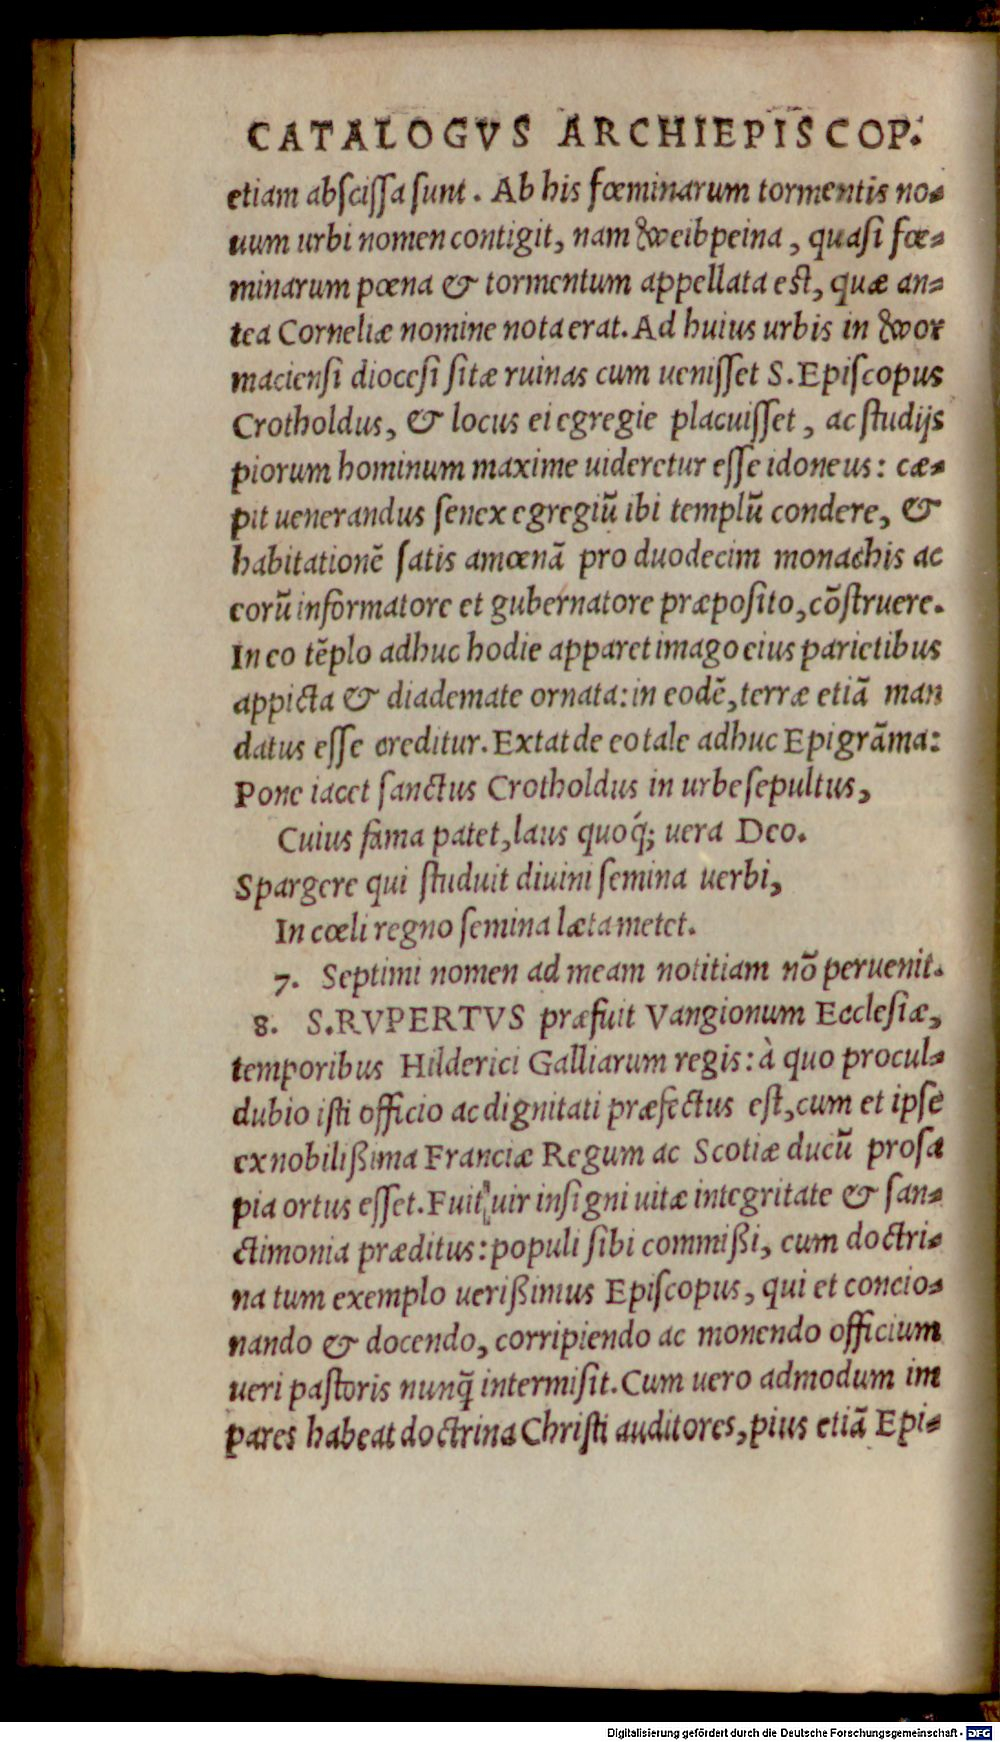 CATALOGVS ARCHIEPISCOP.
etiam abſciſſa ſunt. Ab his fœminarum tormentis no-
uum urbi nomen contigit, nam Weibpeina, quaſi fœ-
minarum pœna & tormentum appellata eſt, quæ an-
tea Corneliæ nomine nota erat. Ad huius urbis in Wor
macienſi dioceſi ſitæ ruinas cum ueniſſet S. Epiſcopus
Crotholdus, & locus ei egregie placuiſſet, ac ſtudijs
piorum hominum maxime uideretur eſſe idoneus: cæ-
pit uenerandus ſenex egregiū ibi templū condere, &
habitationē ſatis amœnā pro duodecim monachis ac
eorū informatore et gubernatore præpoſito, cōſtruere.
In eo tēplo adhuc hodie apparet imago eius parietibus
appicta & diademate ornata: in eodē, terræ etiā man
datus eſſe creditur. Extat de eo tale adhuc Epigrāma:
Pone iacet ſanctus Crotholdus in urbe ſepultus,
Cuius fama patet, laus quoq́; uera Deo.
Spargere qui ſtuduit diuini ſemina uerbi,
In cœli regno ſemina læta metet.
7. Septimi nomen ad meam notitiam nō peruenit.
8. S. RVPERTVS præfuit Vangionum Eccleſiæ,
temporibus Hilderici Galliarum regis: à quo procul-
dubio iſti officio ac dignitati præfectus eſt, cum et ipſe
ex nobilißima Franciæ Regum ac Scotiæ ducū proſa
pia ortus eſſet. Fuit uir inſigni uitæ integritate & ſan-
ctimonia præditus: populi ſibi commißi, cum doctri-
na tum exemplo uerißimus Epiſcopus, qui et concio-
nando & docendo, corripiendo ac monendo officium
ueri paſtoris nunq̃ intermiſit. Cum uero admodum im
pares habeat doctrina Chriſti auditores, pius etiā Epi-
Digitalisierung gefördert durch die Deutsche Forschungsgemeinschaft - DFG